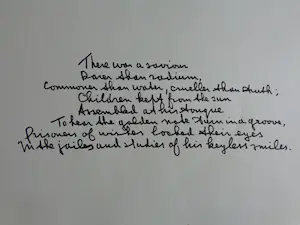 There was a saviour
Rarer than radium,
Commoner than water, crueller than truth;
Children kept from the sun
Assembled at his tongue
To hear the golden note turn in a groove,
Prisoners of wishes locked their eyes
In the jails and studies of his keyless smiles.